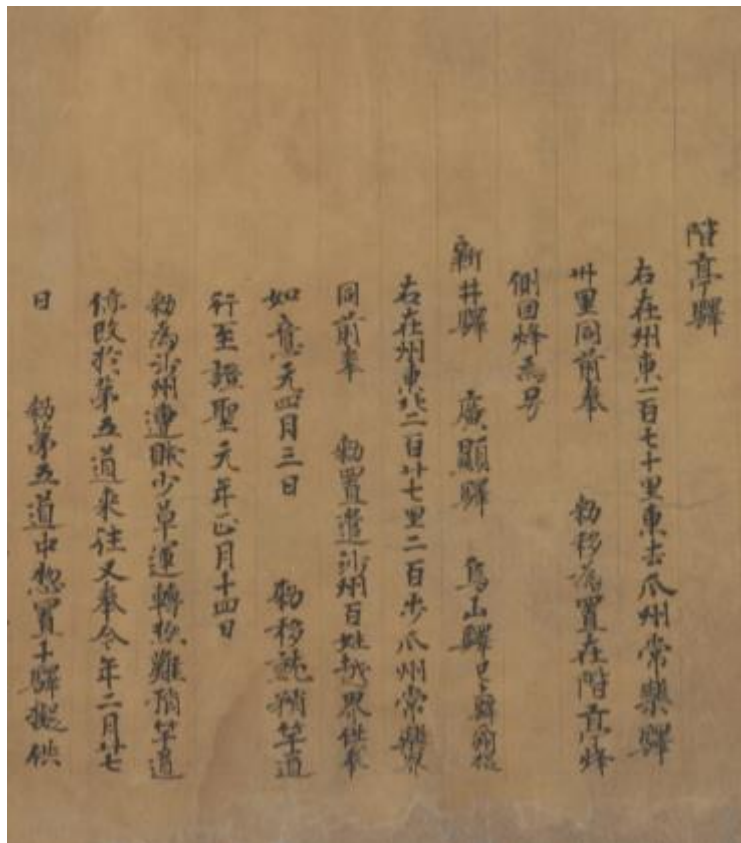 階亭驛
右在州東一百七十里東去瓜州常樂驛
卅里同前奉 勑移為置在階亭烽
側因烽為号
新井驛 廣顯驛 烏山驛已上驛同從
右在州東北二百廿七里二百步瓜州常樂界
同前奉 勑置遣沙州百姓越界供奉
如意元年四月三日 勑移就矟竿道
行至證聖元年正月十四日
勑為沙州遭賊少草運轉極難矟竿道
停改於第五道來往又奉今年二月廿七
日 勑第五道中惣置十驛擬供